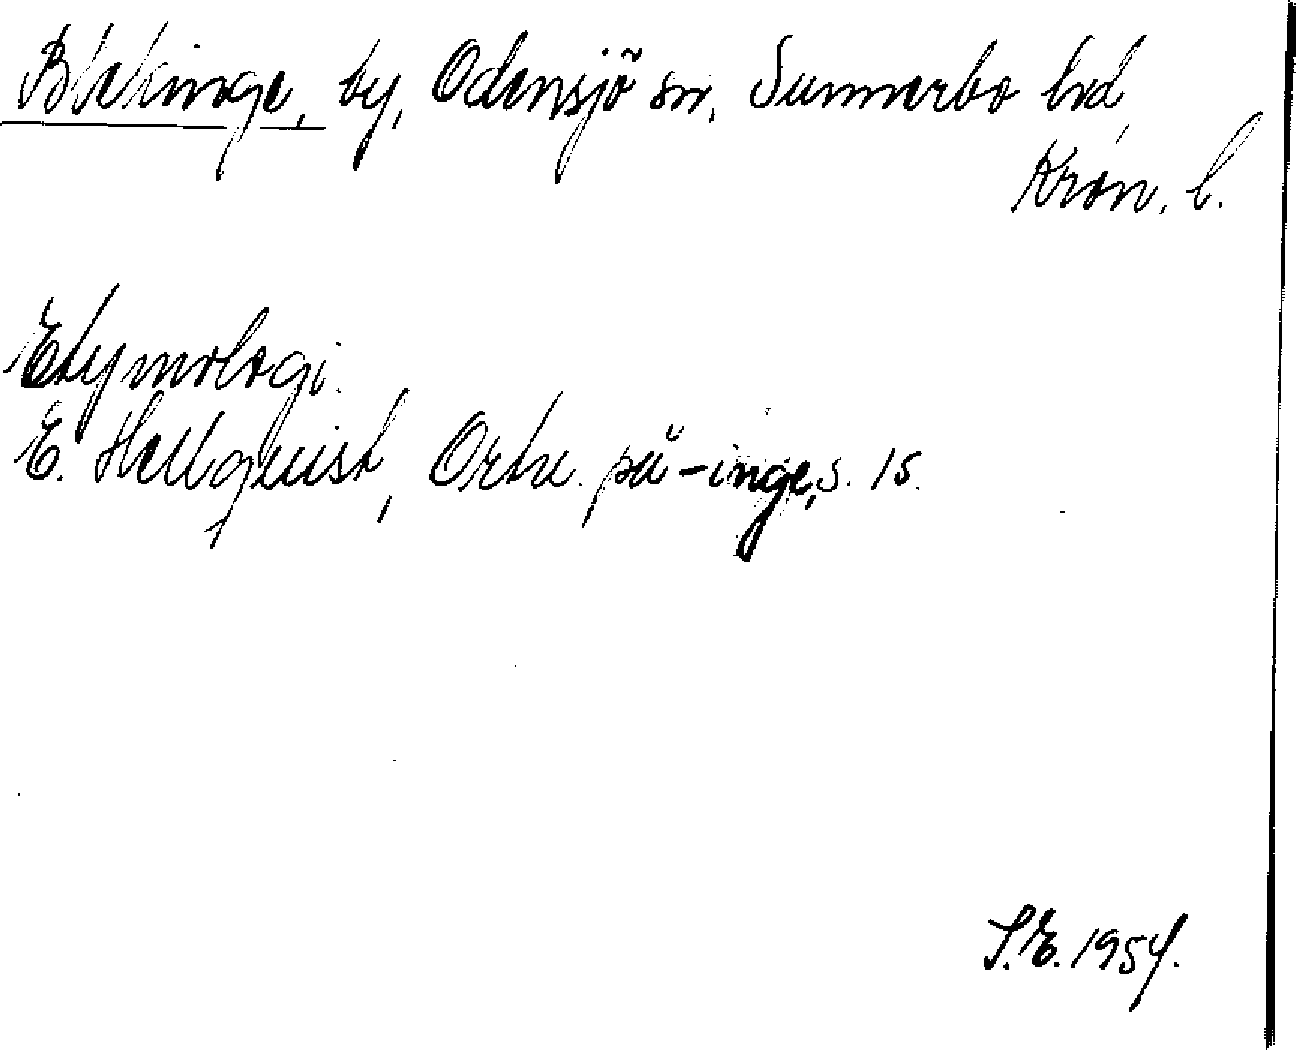 Blekinge, by, Odensjö sn, Sunnerbo hd,
Kron. l.
Etymologi.
E. Hellquist, Ortn. på -inge, s. 15.
S.E. 1954.